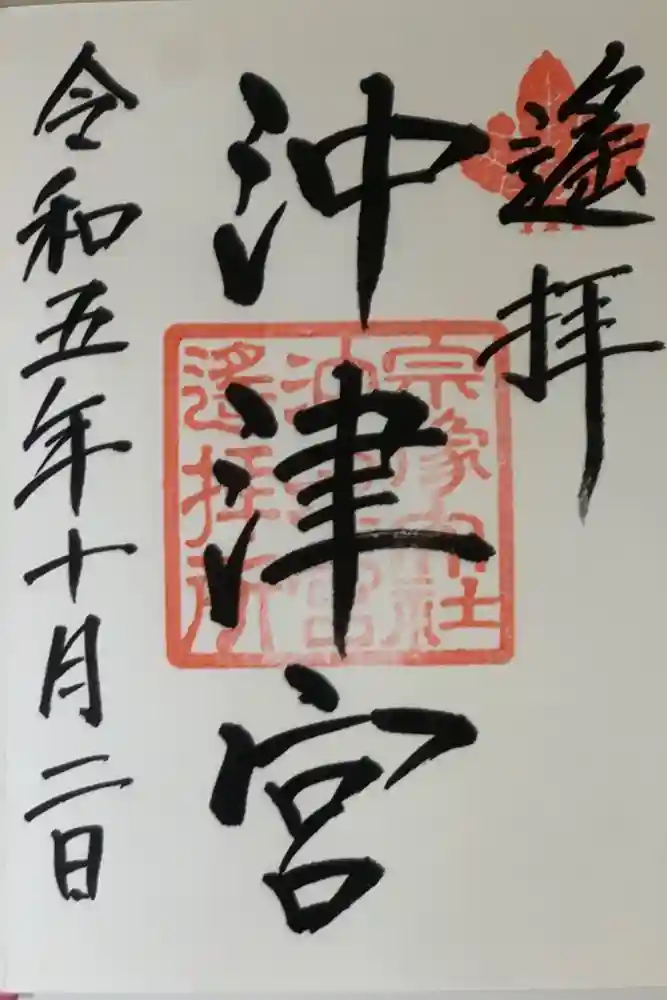 遙拝
沖津宮
宗像大社
沖津宮
遙拝所
令和五年十月二日